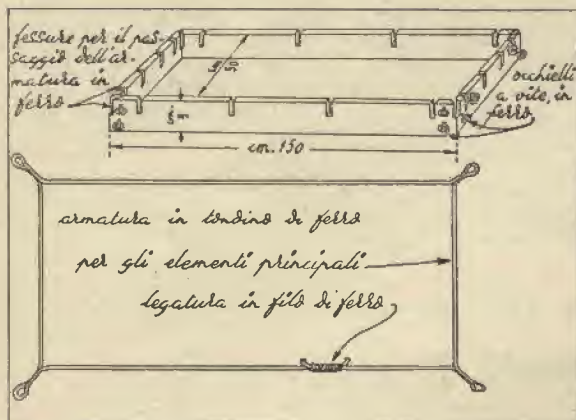 fessure per il pas-
saggio dell'ar-
matura in
ferro
occhielli
a vite, in
ferro
cm. 150
armatura in tondino di ferro
per gli elementi principali
legatura in filo di ferro